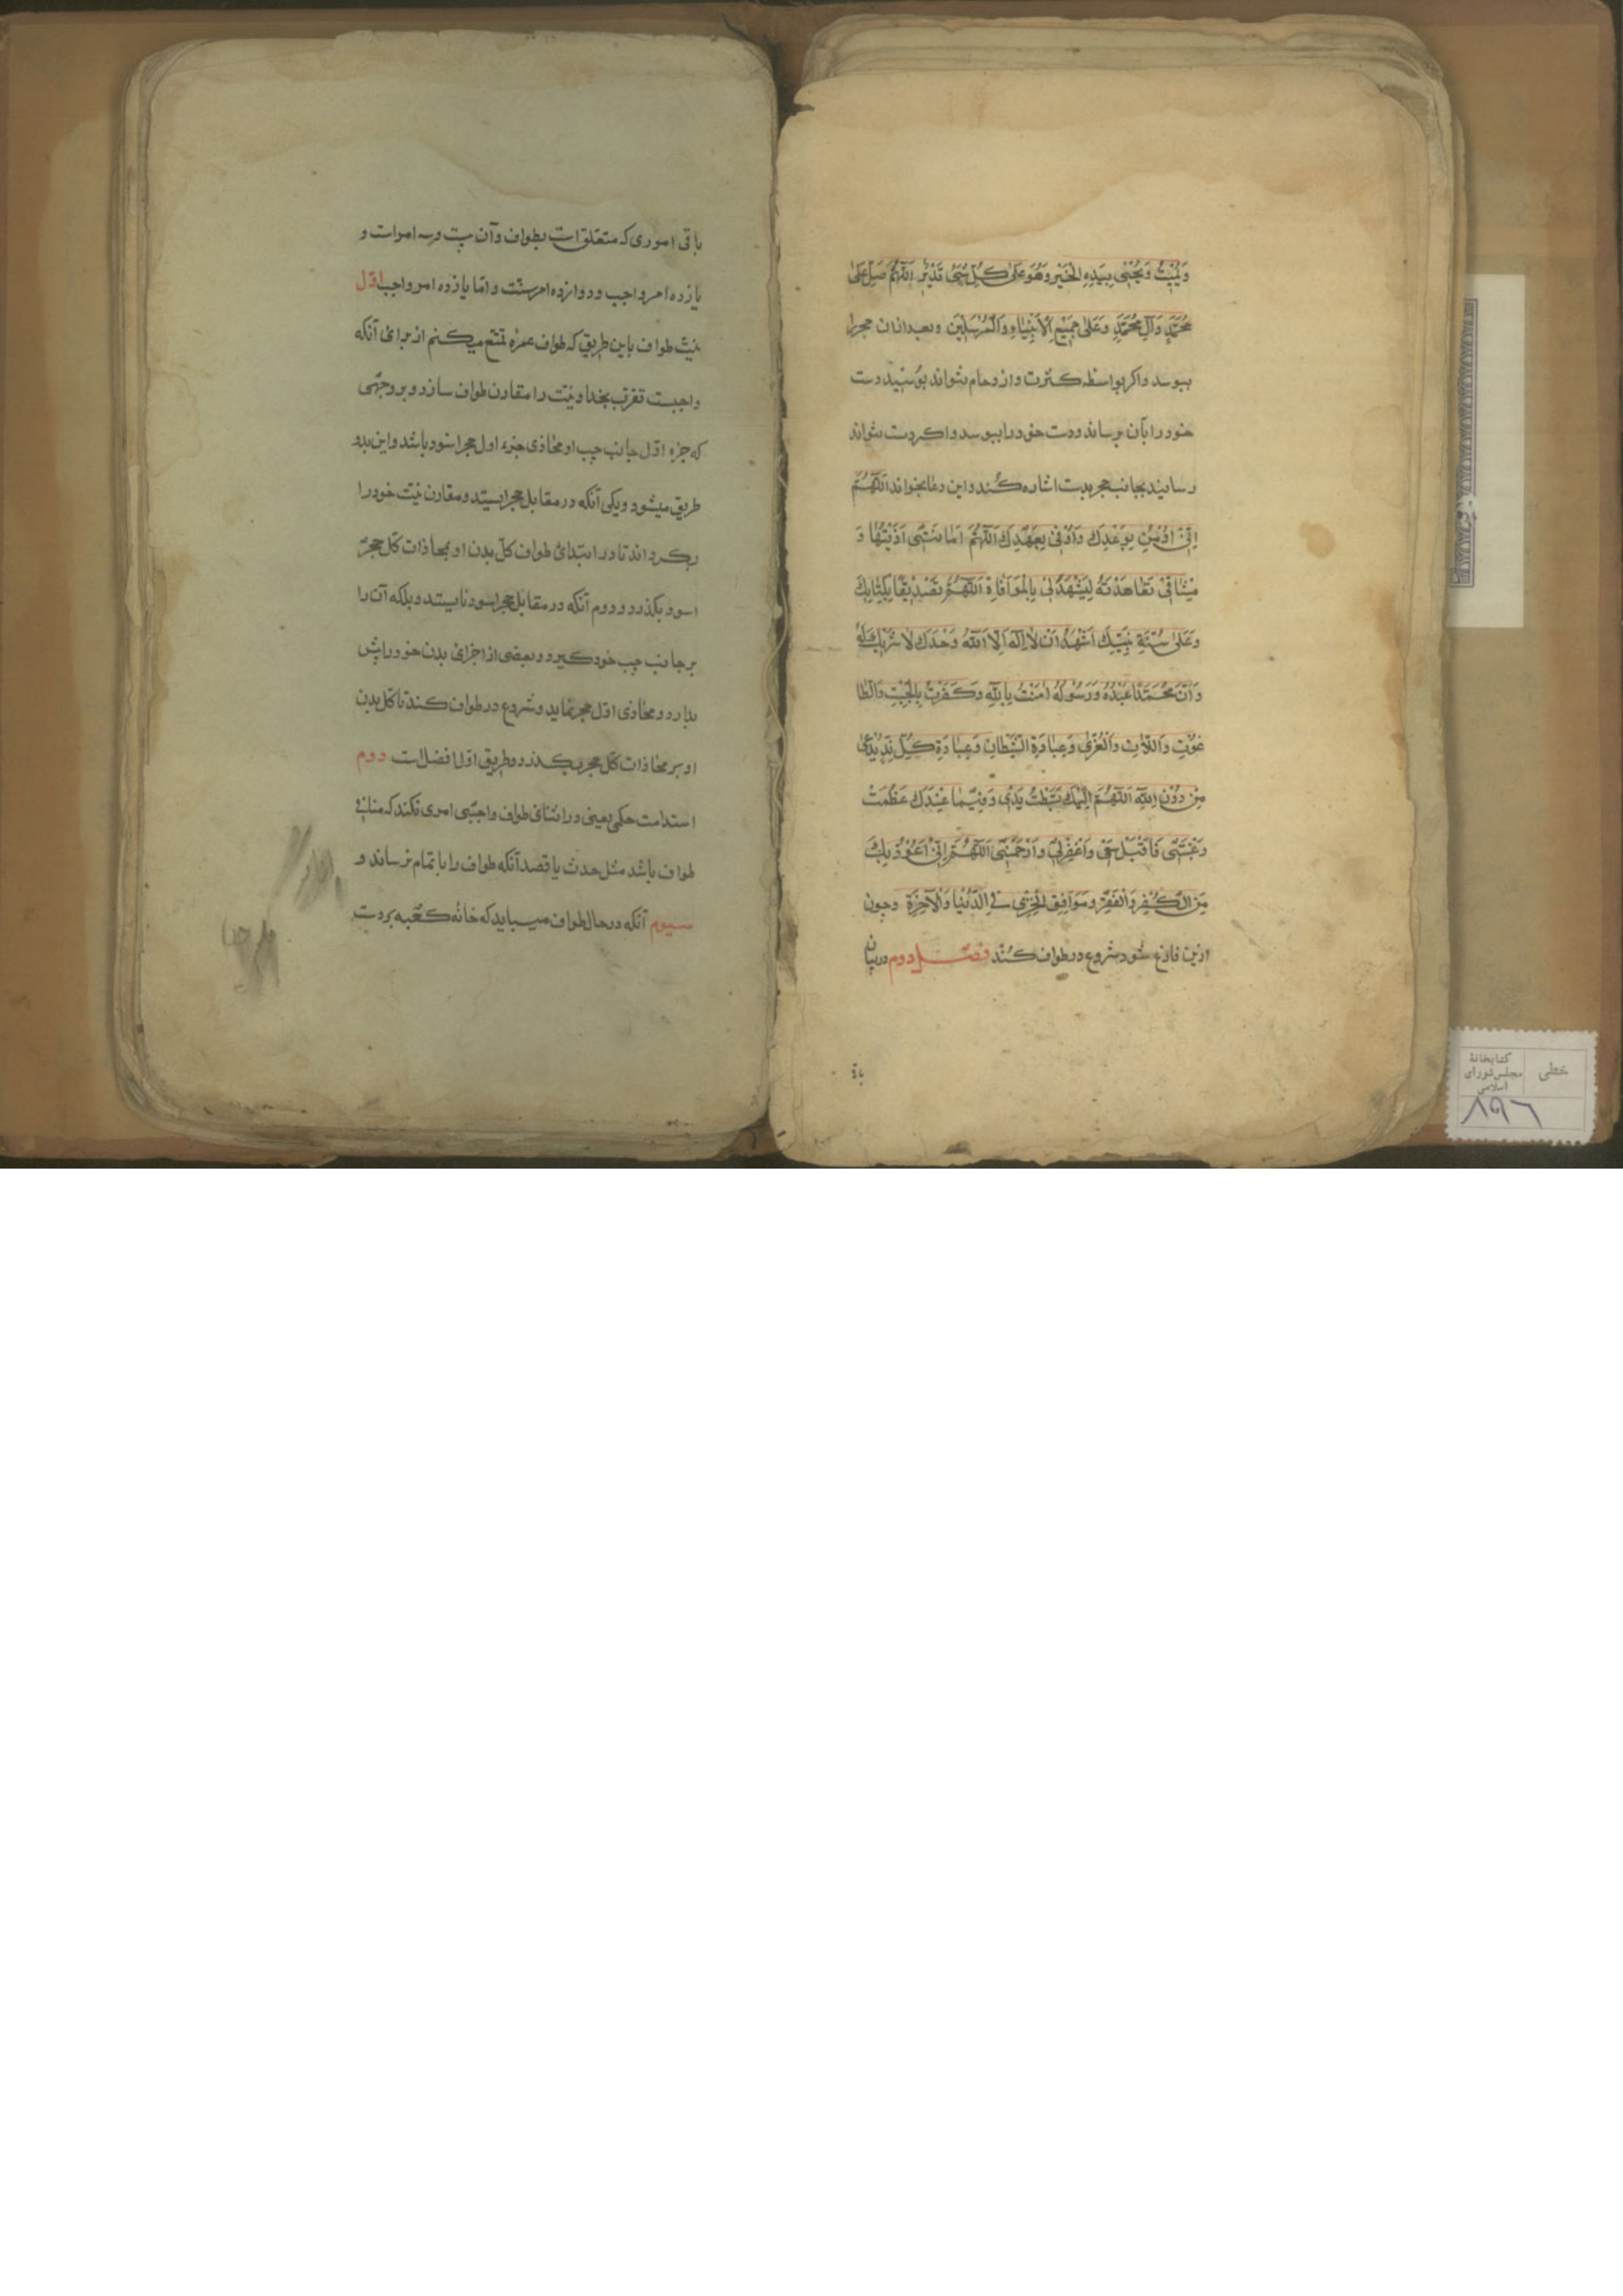 وَيُمِيْتُ وَيُحْيِي بِيَدِهِ الْخَيْرِ وَهُوَ عَلٰى كُلِّ شَيْءٍ قَدِيْرٌ اَللّٰهُمَّ صَلِّ عَلٰى
مُحَمَّدٍ وَآلِ مُحَمَّدٍ وَعَلٰى جَمِيْعِ الْاَنْبِيَاءِ وَالْمُرْسَلِيْنَ وبعد ازان حجر را
ببوسد واکر بواسطه کثرت وازدحام نتواند بوسید دست
خود را بآن برساند ودست خود را ببوسد واکر دست نتواند
رسانید بجانب حجر بدست اشاره کند واین دعا بخواند اَللّٰهُمَّ
اِنِّيْ اُؤْمِنُ بِوَعْدِكَ وَاُوْفِيْ بِعَهْدِكَ اَللّٰهُمَّ اَمَانَتِيْ اَدَّيْتُهَا وَ
مِيْثَاقِيْ تَعَاهَدْتُهُ لِيَشْهَدَ لِيْ بِالْمُوَافَاةِ اَللّٰهُمَّ تَصْدِيْقًا بِكِتَابِكَ
وَعَلٰى سُنَّةِ نَبِيِّكَ اَشْهَدُ اَنْ لَا اِلٰهَ اِلَّا اللّٰهُ وَحْدَكَ لَا شَرِيْكَ لَهُ
وَاَنَّ مُحَمَّدًا عَبْدُهُ وَرَسُوْلُهُ اٰمَنْتُ بِاللّٰهِ وَكَفَرْتُ بِالْجِبْتِ وَالْطَّا
غُوْتِ وَاللَّاتِ وَالْعُزّٰى وَعِبَادَةِ الشَّيْطَانِ وَعِبَادَةِ كُلِّ نِدٍّ يُدْعٰى
مِنْ دُوْنِ اللّٰهِ اَللّٰهُمَّ اِلَيْكَ بَسَطْتُ يَدِيْ وَفِيْمَا عِنْدَكَ عَظُمَتْ
رَغْبَتِيْ فَاقْبَلْ سَعْيِيْ وَاغْفِرْلِيْ وَارْحَمْنِيْ اَللّٰهُمَّ اِنِّيْ اَعُوْذُ بِكَ
مِنَ الْكُفْرِ وَالْفَقْرِ وَمَوَاقِفِ الْخِزْيِ فِي الدُّنْيَا وَالْآخِرَةِ وچون
ازین فارغ شود شروع در طواف کند فصل دوم در بیان
باقی
باقی اموری که متعلق است بطواف وآن بیست وسه امر است و
یازده امر واجب ودوازده امر سنت واما یازده امر واجب اول
نیت طواف باین طریق که طواف عمره تمتع میکنم از برای آنکه
واجبست تقرب بخدا ونیت را مقارن طواف سازد وبر وجهی
که جزء اول جانب چپ او محاذی جزء اول حجر اسود باشد واین بدو
طریق میشود ویکی آنکه در مقابل حجر ایستد ومقارن نیت خود را
بکرداند تا در ابتدای طواف کل بدن او بمحاذات کل حجر
اسود بکذرد ودوم آنکه در مقابل حجر اسود نایستد وبلکه آن را
بر جانب چپ خود کیرد وبعضی از اجزای بدن خود را پیش
بدارد ومحاذی اول حجر نماید وشروع در طواف کند تا کل بدن
او بر محاذات کل حجر بکذرد وطریق اول افضل است دوم
استدامت حکمی یعنی در اثنای طواف واجبی امری نکند که منافی
طواف باشد مثل حدث یا قصد آنکه طواف را باتمام نرساند و
سیوم آنکه در حال طواف میباید که خانه کعبه بر دست
خطی
کتابخانهٔ
مجلس شورای
اسلامی
۸۹۶